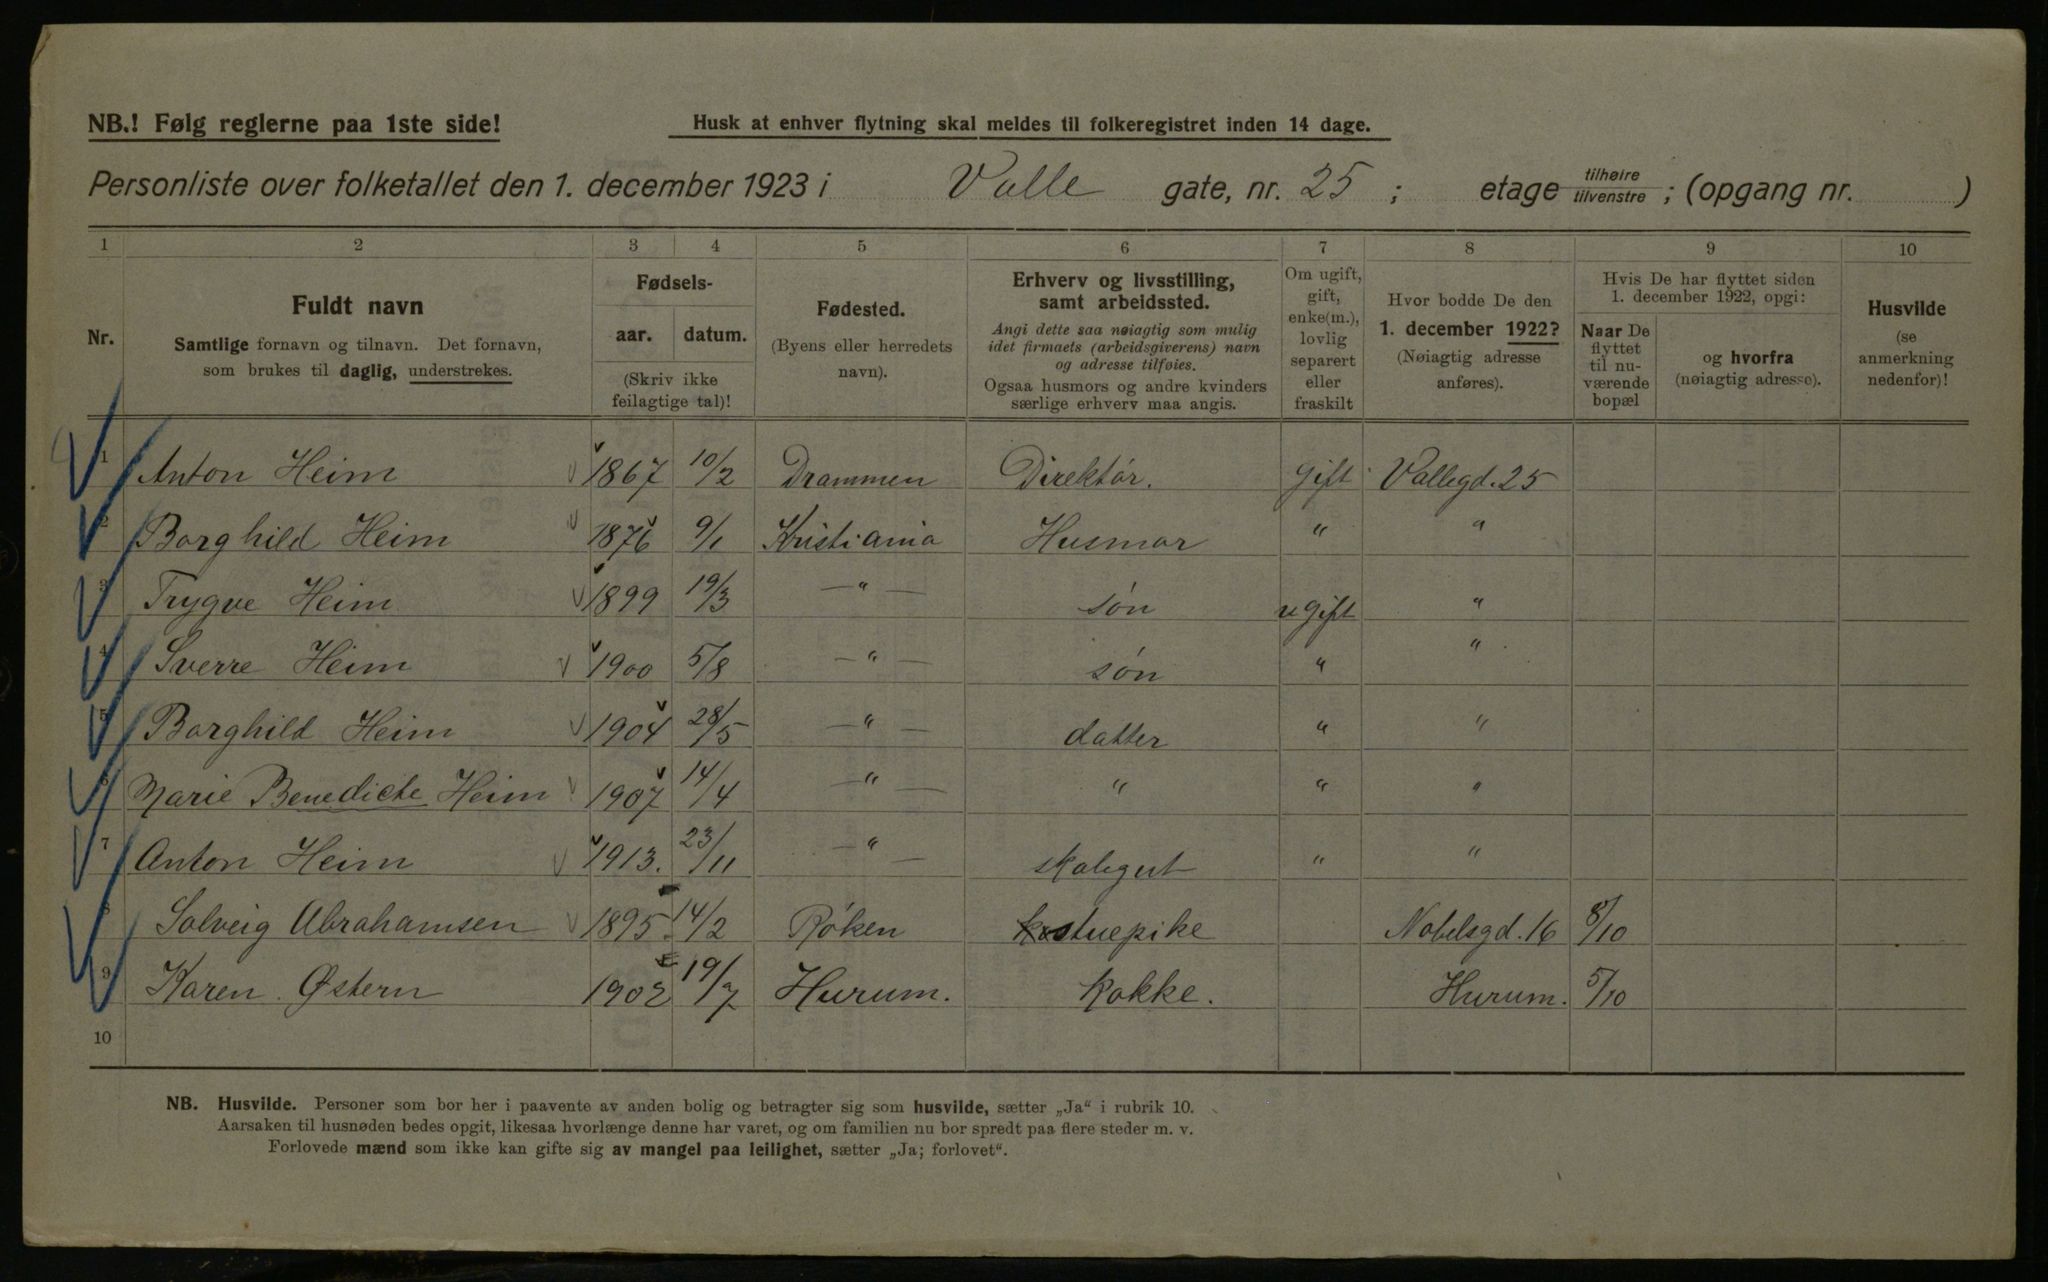 NB.! Følg reglerne paa 1ste side!
Husk at enhver flytning skal meldes til folkeregistret inden 14 dage.
Personliste over folketallet den 1. december 1923 i Valle gate, nr. 25 ; etage tilhøire tilvenstre ; (opgang nr. )
1 2 3 4 5 6 7 8 9 10
Nr.
Fuldt navn
Samtlige fornavn og tilnavn. Det fornavn,
som brukes til daglig, understrekes.
Fødsels-
aar. datum.
(Skriv ikke
feilagtige tal)!
Fødested.
(Byens eller herredets
navn).
Erhverv og livsstilling,
samt arbeidssted.
Angi dette saa nøiagtig som mulig
idet firmaets (arbeidsgiverens) navn
og adresse tilføies.
Ogsaa husmors og andre kvinders
særlige erhverv maa angis.
Om ugift,
gift,
enke(m.),
lovlig
separert
eller
fraskilt
Hvor bodde De den
1. december 1922?
(Nøiagtig adresse
anføres).
Hvis De har flyttet siden
1. december 1922, opgi:
Naar De
flyttet
til nu-
værende
bopæl
og hvorfra
(nøiagtig adresse).
Husvilde
(se
anmerkning
nedenfor)!
1 Anton Heim 1867 10/2 Drammen Direktór. Gift Vallegd. 25
2 Borghild Heim 1876 9/1 Kristiania Husmor " "
3 Trygve Heim 1899 19/3 —"— són ugift "
4 Sverre Heim 1900 5/8 —"— són " "
5 Borghild Heim 1904 28/5 —"— datter " "
6 Marie Benedicte Heim 1907 14/4 —"— " " "
7 Anton Heim 1913. 23/11 —"— skolegut " "
8 Solveig Abrahamsen 1895 14/2 Róken stuepike Nobelsgd. 16 8/10
9 Karen Østern 1902 19/7 Hurum. kokke. Hurum. 5/10
10
NB. Husvilde. Personer som bor her i paavente av anden bolig og betragter sig som husvilde, sætter „Ja“ i rubrik 10.
Aarsaken til husnøden bedes opgit, likesaa hvorlænge denne har varet, og om familien nu bor spredt paa flere steder m. v.
Forlovede mænd som ikke kan gifte sig av mangel paa leilighet, sætter „Ja; forlovet“.